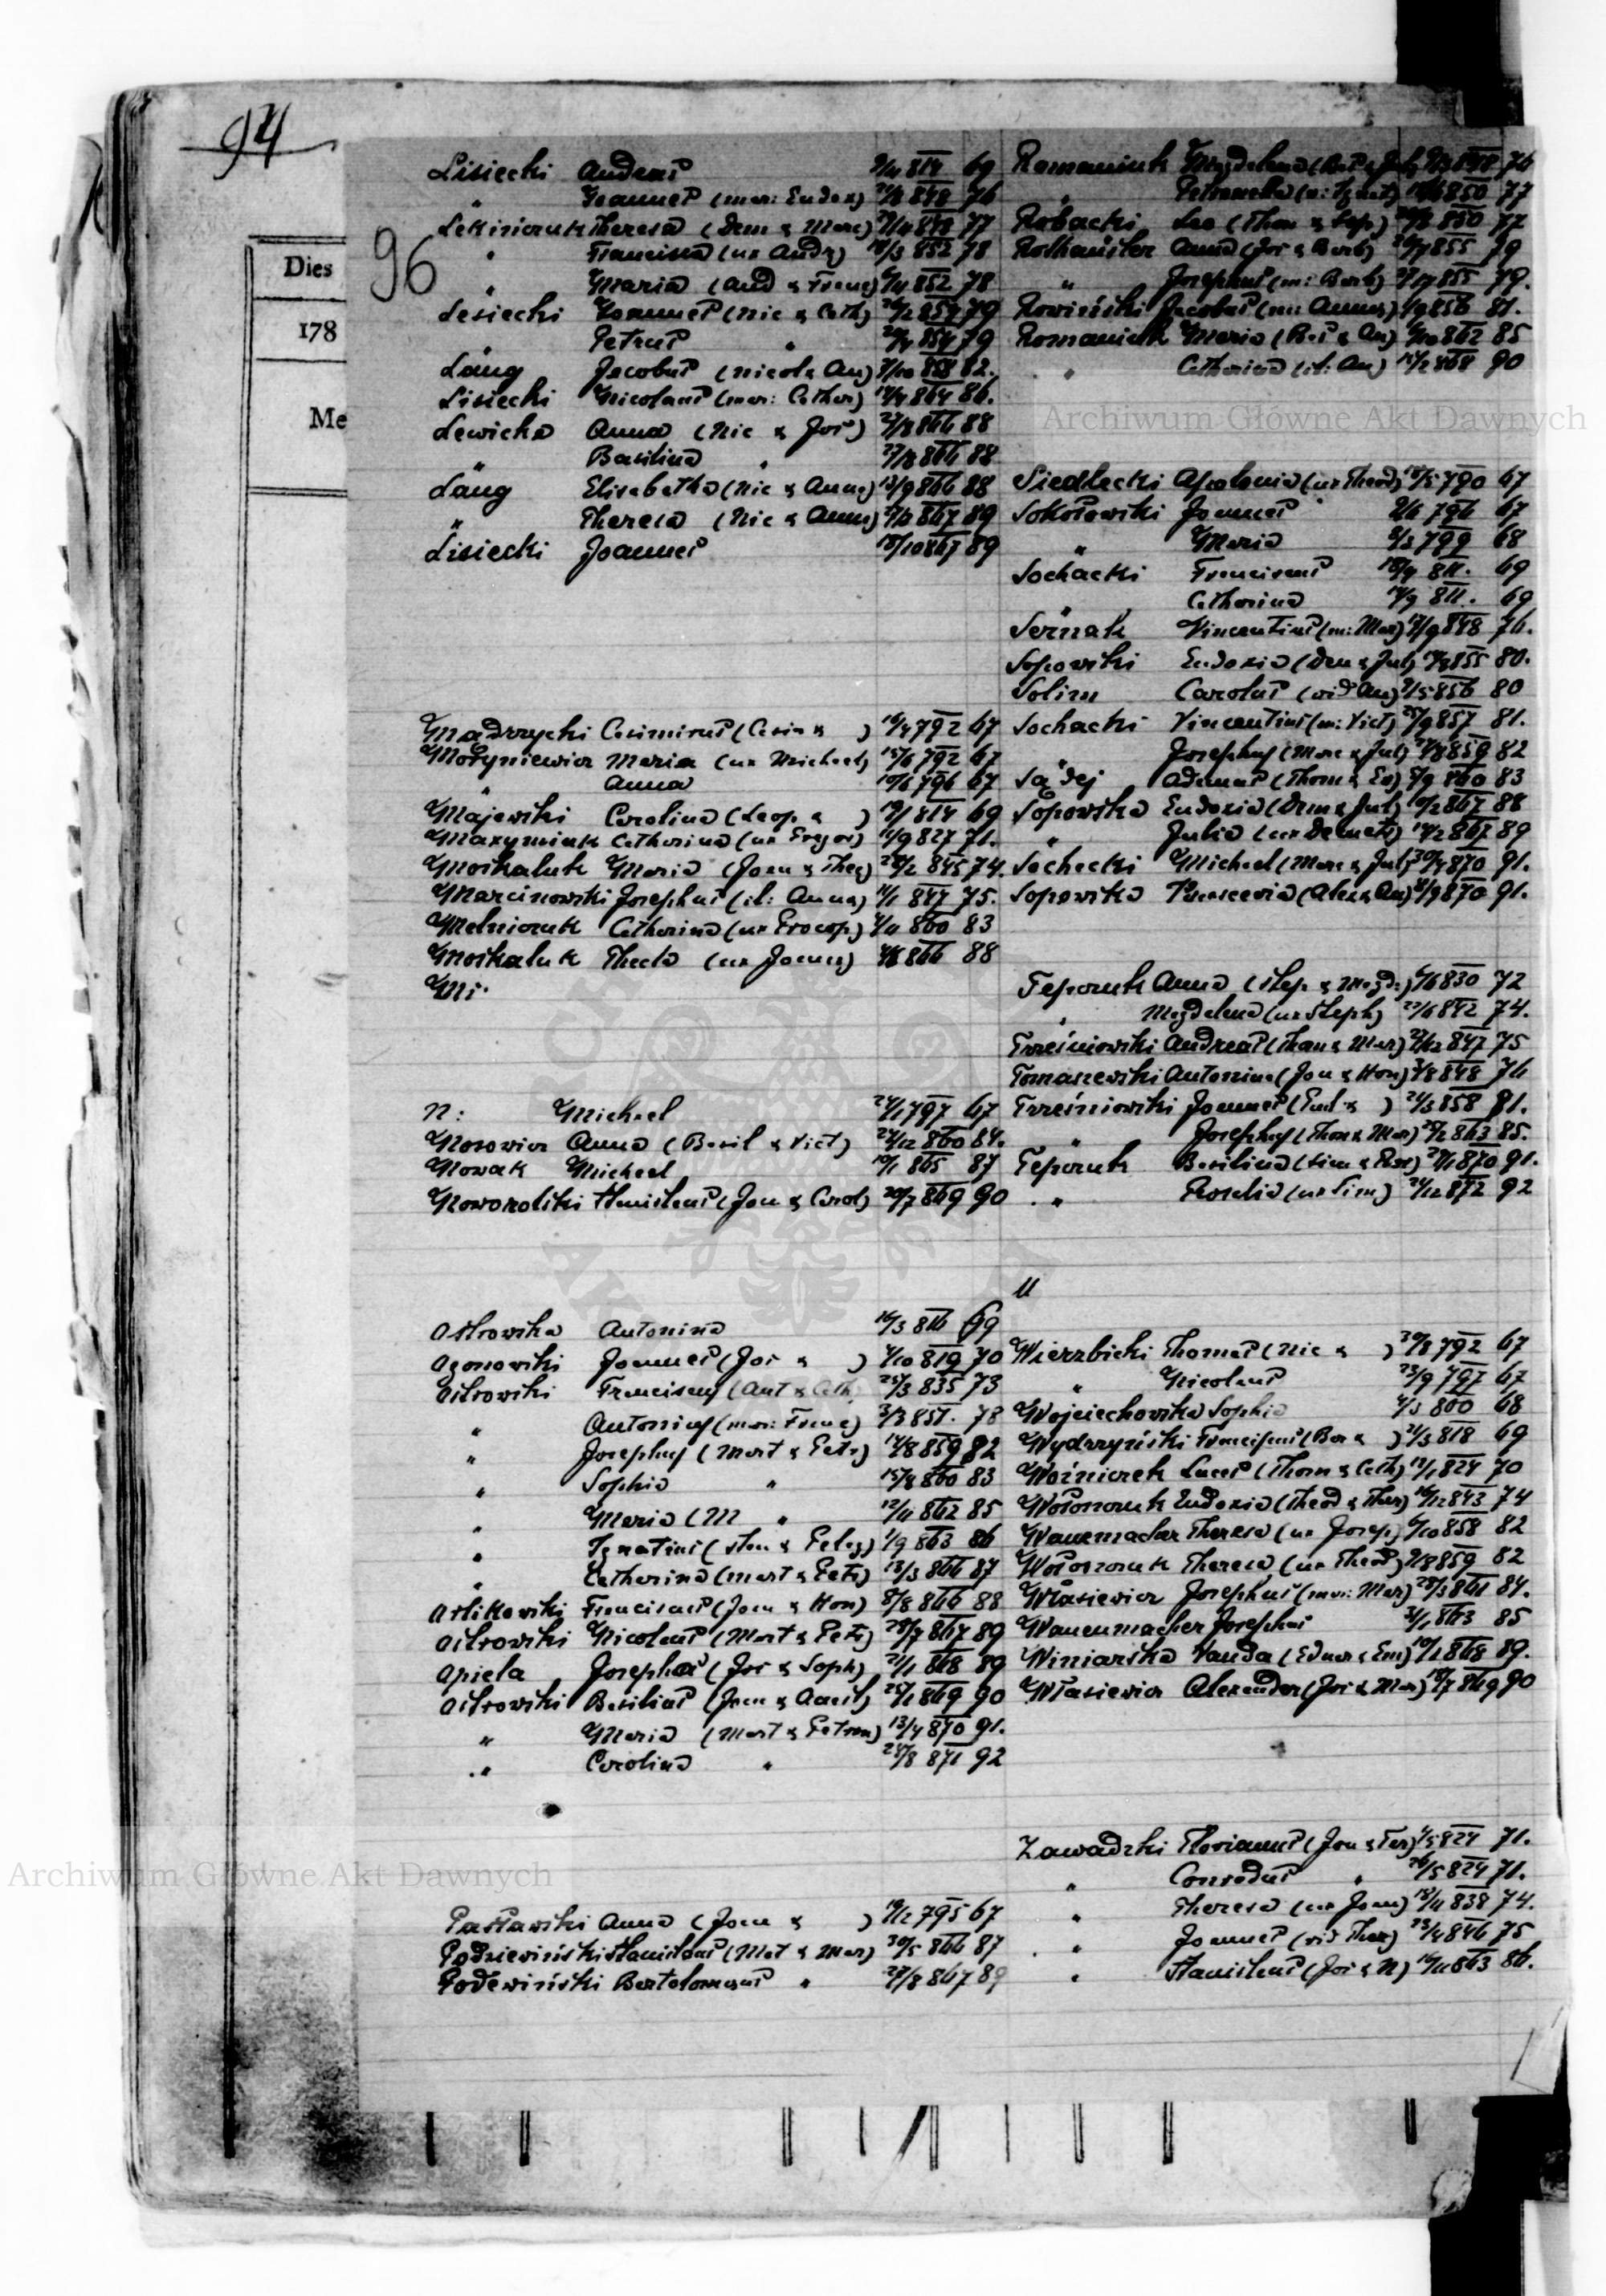 94
96
Dies
178
Me
Lisiecki Andreas 9/11 814 69
" Joannes (mar: Eudox) 848 76
Lekiniczuk Theresa (Dem & Marc) 848 77
" Francisca (ux Andr) 18/3 852 78
" Maria (And & Franc) 852 78
Lesiecki Joannes (Nic & Cath) 79
" Petrus " 854 79
Lang Jacobus (Nicol & An) 7/10 858 82.
Lisiecki Nicolaus (mar: Cathar) 14/4 864 86.
Lewicka Anna (Nic & Jos) 27/8 866 88
" Basilina " 27/8 866 88
Lang Elisabetha (Nic & Anna) 13/9 866 88
" Theresa (Nic & Anna) 867 89
Lisiecki Joannes 18/10 867 89
Mądrzycki Casimirus (Casim & ) 16/4 792 67
Motyniewicz Maria (ux Michael) 15/6 792 67
" Anna 10/6 796 67
Majewski Carolina (Leop. & ) 19/1 814 69
Maxymiuk Catharina (ux Gregor) 11/9 827 71.
Moskaluk Maria (Joan & Thec) 845 74.
Marcinowski Josephus (il: Anna) 11/1 847 75.
Melniczuk Catharina (ux Procop) 4/11 860 83
Moskaluk Thecla (ux Joann) 4/8 866 88
Mi.
N: Michael 24/1 797 67
Nosowicz Anna (Basil & Vict) 24/12 860 84.
Nowak Michael 10/1 865 87
Nowosolski Stanislaus (Jon & Carol) 20/7 869 90
Ostrowska Antonina 16/3 816 69
Ogonowski Joannes (Jos & ) 4/10 819 70
Ostrowski Franciscus (Ant & Cath) 25/3 835 73
" Antonius (mar: Franc) 3/3 851. 78
" Josephus (Mart & Petr) 14/8 859 82
" Sophia " 15/4 860 83
" Maria (M " 12/11 862 85
" Ignatius (Stan & Pelag) 1/9 863 86
" Catharina (Mart & Petr) 13/3 866 87
Orlikowski Franciscus (Joan & Hon) 8/8 866 88
Ostrowski Nicolaus (Mart & Petr) 28/7 867 89
Opiela Josepha (Jos & Soph) 21/1 868 89
Ostrowski Basilius (Joan & Aniel) 25/1 869 90
" Maria (Mart & Petron) 13/4 870 91.
" Carolina " 871 92
Pasławski Anna (Joan & ) 19/12 795 67
Podziewiński Stanislaus (Mat & Mar) 30/5 866 87
Podewiński Bartolomaeus " 27/8 867 89
Romaniuk Magdalena 76
" Petronela (u: Ignat) 850 77
Robacki Leo (Thom & Sep.) 850 77
Rothauster Anna (Jos & Barb) 855 79
" Josephus (m: Barb) 855 79.
Rowiński Jacobus (m: Anna) 1/9 856 81.
Romaniuk Maria (Bas & An) 862 85
" Catharina (il: An) 868 90
Siedlecki Apolonia (ux Theod) 18/5 790 67
Sokołowski Joannes 2/6 796 67
" Maria 799 68
Sochacki Franciscus 18/9 811. 69
" Catharina 14/9 811. 69
Sernak Vincentius (m: Mar) 848 76.
Sopowski Eudoxia (Dem & Jul) 855 80.
Solim Carolus (vid An) 9/5 856 80
Sochacki Vincentius (m: Vict) 25/9 857 81.
" Josephus (Marc & Jul) 859 82
Sądej Adamus (Thom & Ev) 5/9 860 83
Sopowska Eudoxia (Dem & Jul) 10/2 867 88
" Julia (ux Demetr) 14/2 867 89
Sochacki Michael (Marc & Jul) 30/4 870 91.
Sopowska Parascevia (Alex & An) 8/9 870 91.
Teporuk Anna (Step. & Magd.) 830 72
" Magdalena (ux Steph) 22/6 842 74.
Trześniowski Andreas (Thom & Mar) 27/12 847 75
Tomaszewski Antonina (Jon & Hon) 3/8 848 76
Trześniowski Joannes (Paul & ) 24/3 858 81.
" Josephus (Thom & Mar) 25/2 863 85.
Teporuk Basilina (Sim & Ros) 27/1 870 91.
" Rosalia (ux Sim) 21/12 872 92
U
Wierzbicki Thomas (Nic & ) 30/8 792 67
" Nicolaus 23/9 797 67
Wojciechowska Sophia 4/3 800 68
Wydrzyński Franciscus (Bar & ) 21/3 818 69
Woźniczek Lucas (Thom & Cath) 13/1 824 70
Wołonczuk Eudoxia (Theod & Ther) 16/12 843 74
Wanemacher Theresa (ux Josep) 6/10 858 82
Wołoszczuk Theresa (ux Theod) 9/8 859 82
Własiewicz Josephus (mar: Mar) 28/3 861 84.
Wanenmacher Josephus 863 85
Winiarska Vanda (Edmar & Em) 868 89.
Własiewicz Alexander (Jos & Mar) 869 90
Zawadzki Florianus (Jon & Ter) 4/5 824 71.
" Conradus " 26/5 824 71.
" Theresa (ux Joan) 18/11 838 74.
" Joannes (vid Ther) 23/4 846 75
" Stanislaus (Jos & N) 16/11 863 86.
Archiwum Główne Akt Dawnych
Archiwum Główne Akt Dawnych